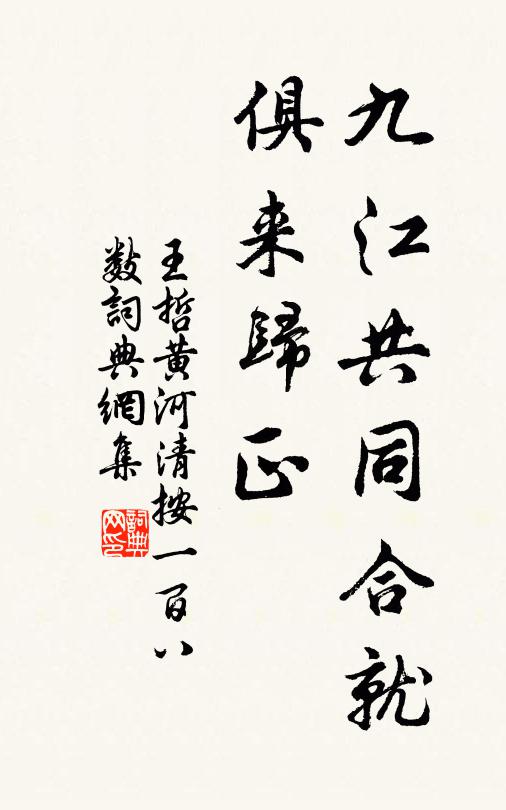 九江共同合就
俱来歸正
王哲黄河清按一百八
數詞典網集
詞典网印